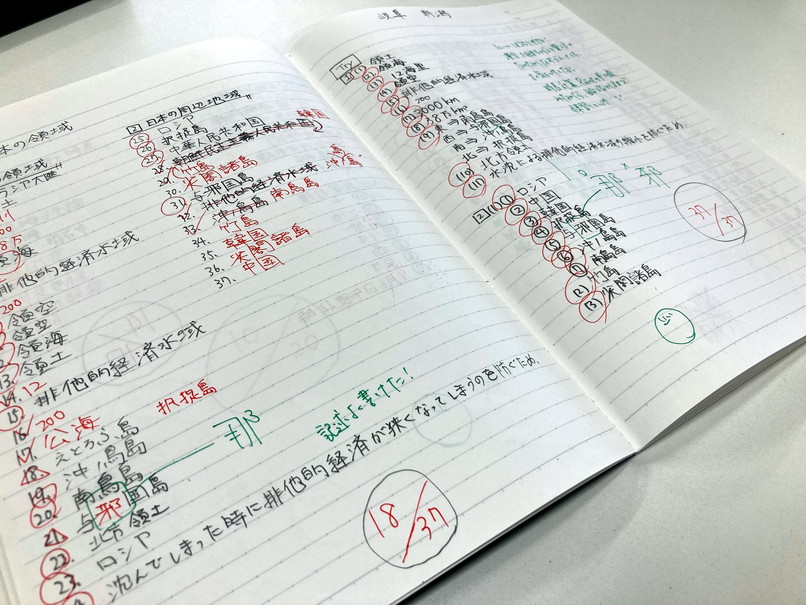 日本の領域
領域
ユーラシア大陸
排他的経済水域
200
領空
領空
領海
領土
14. 12
15. 排他的経済水域
16. 200
17. 公海
18. えとろふ島
択捉島
19. 沖ノ鳥島
20. 南鳥島
21. 与邪国島
那
22. 北方領土
23. ロシア
沈んでしまった時に排他的経済が狭くなってしまうのを防ぐため。
記述よく書けた!
18/37
[2] 日本の周辺地域
25. ロシア
26. 択捉島
27. 中華人民共和国
28. 朝鮮民主主義人民共和国
韓国
29. 竹島
30. 尖閣諸島
31. 与那国島
32. 排他的経済水域
33. 沖ノ鳥島 南鳥島
34. 竹島
35. 韓国
36. 尖閣諸島
37. 中国
岐阜 新潟
Try
[1](1) 領土
(2) 領海
(3) 公海
(4) 領空
(5) 排他的経済水域
(6) 200
(7) 3000km
(8) 38万km²
(9) 東→南鳥島
南→沖ノ鳥島
西→与那国島
北→択捉島
(10) 北方領土
(11) 水没による排他的経済水域の縮小を防ぐため。
那 × 邪
[2](1)① ロシア
② 中国
③ 韓国
④ 択捉島
⑤ 与那国島
⑥ 沖ノ鳥島
⑦ 南鳥島
(2) 竹島
(3) 尖閣諸島
37/37